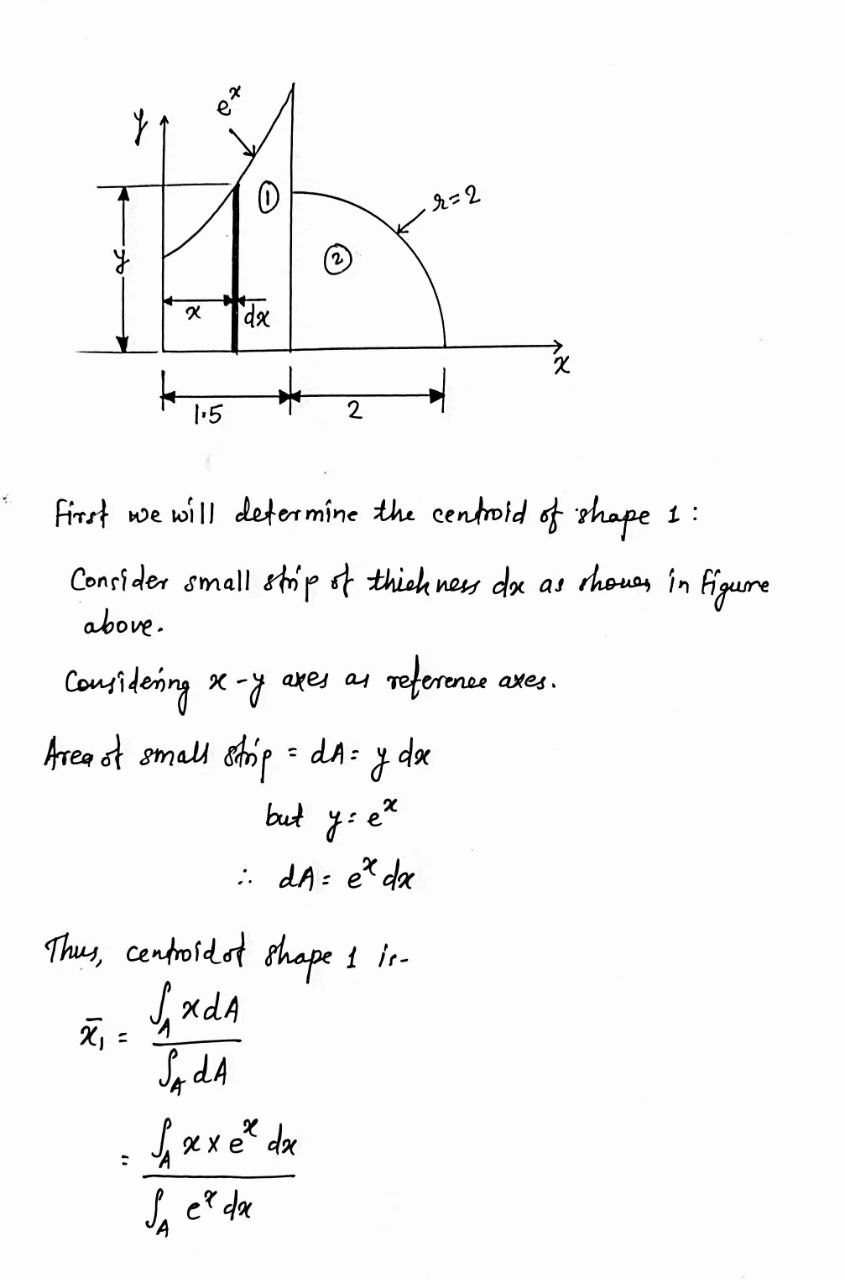 y
e^x
①
r=2
②
y
x
dx
x
1.5
2
First we will determine the centroid of shape 1 :
Consider small strip of thickness dx as shown in figure
above.
Considering x-y axes as reference axes.
Area of small strip = dA = y dx
but y = e^x
∴ dA = e^x dx
Thus, centroid of shape 1 is-
x̄₁ = ∫_A x dA / ∫_A dA
= ∫_A x × e^x dx / ∫_A e^x dx